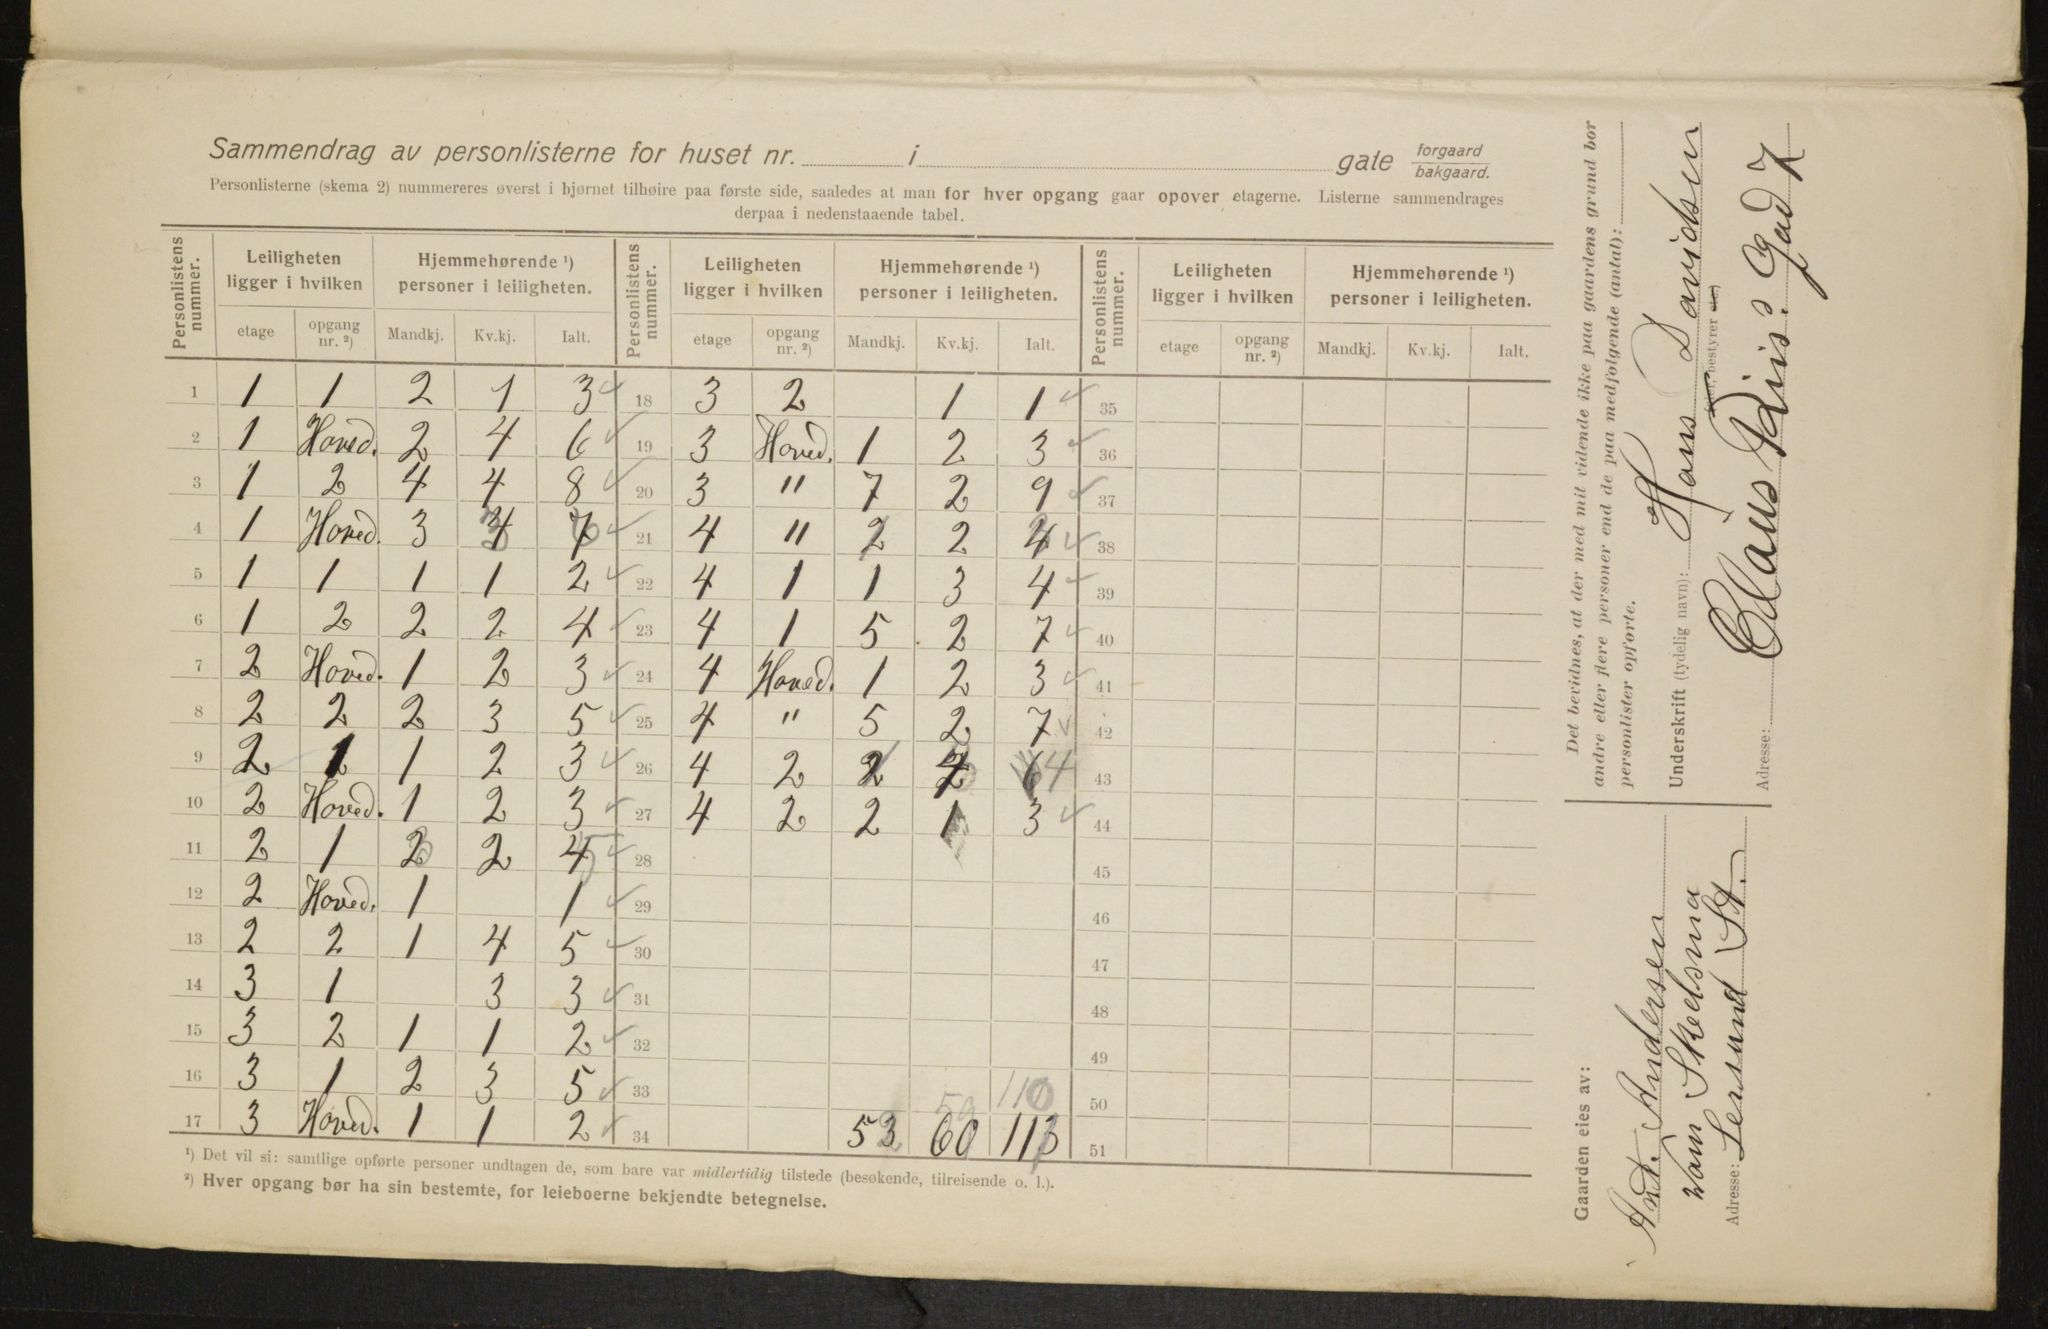 Sammendrag av personlisterne for huset nr. i gate forgaard bakgaard.
Personlisterne (skema 2) nummereres øverst i bjørnet tilhøire paa første side, saaledes at man for hver opgang gaar opover etagerne. Listerne sammendrages
derpaa i nedenstaaende tabel.
Personlistens nummer. Leiligheten ligger i hvilken Hjemmehørende ¹) personer i leiligheten. Personlistens nummer. Leiligheten ligger i hvilken Hjemmehørende ¹) personer i leiligheten. Personlistens nummer. Leiligheten ligger i hvilken Hjemmehørende ¹) personer i leiligheten.
etage opgang nr. ²) Mandkj. Kv.kj. Ialt. etage opgang nr. ²) Mandkj. Kv.kj. Ialt. etage opgang nr. ²) Mandkj. Kv.kj. Ialt.
1 1 1 2 1 3 18 3 2 1 1 35
2 1 Hoved. 2 4 6 19 3 Hoved. 1 2 3 36
3 1 2 4 4 8 20 3 " 7 2 9 37
4 1 Hoved. 3 4 7 21 4 " 2 2 4 38
5 1 1 1 1 2 22 4 1 1 3 4 39
6 1 2 2 2 4 23 4 1 5 2 7 40
7 2 Hoved. 1 2 3 24 4 Hoved. 1 2 3 41
8 2 2 2 3 5 25 4 " 5 2 7 42
9 2 1 1 2 3 26 4 2 2 4 43
10 2 Hoved. 1 2 3 27 4 2 2 1 3 44
11 2 1 2 2 4 28 45
12 2 Hoved. 1 1 29 46
13 2 2 1 4 5 30 47
14 3 1 3 3 31 48
15 3 2 1 1 2 32 49
16 3 1 2 3 5 33 110 50
17 3 Hoved. 1 1 2 34 53 60 113 51
¹) Det vil si: samtlige opførte personer undtagen de, som bare var midlertidig tilstede (besøkende, tilreisende o. l.).
²) Hver opgang bør ha sin bestemte, for leieboerne bekjendte betegnelse.
Det bevidnes, at der med mit vidende ikke paa gaardens grund bor
andre eller flere personer end de paa medfølgende (antal):
personlister opførte.
Underskrift (tydelig navn): Hans Davidsen
bestyrer
Adresse: Claus Riis's Gad 7
Gaarden eies av:
Andersen
Adresse: Lersund St.